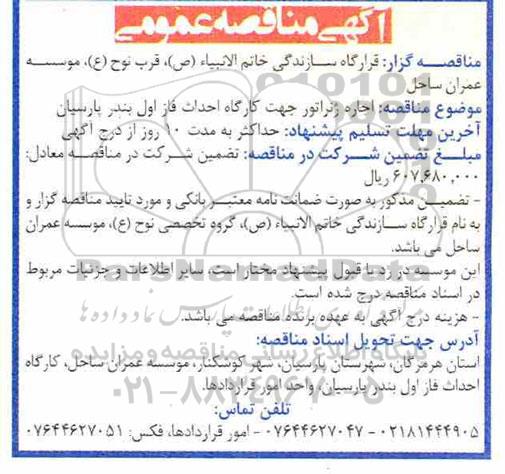 آگهی مناقصه عمومی
مناقصه گزار: قرارگاه سازندگی خاتم الانبیاء (ص)، قرب نوح (ع)، موسسه
عمران ساحل
موضوع مناقصه: اجاره ژنراتور جهت کارگاه احداث فاز اول بندر پارسیان
آخرین مهلت تسلیم پیشنهاد: حداکثر به مدت ۱۰ روز از درج آگهی
مبلغ تضمین شرکت در مناقصه: تضمین شرکت در مناقصه معادل:
۶۰۷,۶۸۰,۰۰۰ ریال
- تضمین مذکور به صورت ضمانت نامه معتبر بانکی و مورد تایید مناقصه گزار و
به نام قرارگاه سازندگی خاتم الانبیاء (ص)، گروه تخصصی نوح (ع)، موسسه عمران
ساحل می باشد.
این موسسه در رد یا قبول پیشنهاد مختار است، سایر اطلاعات و جزئیات مربوط
در اسناد مناقصه درج شده است.
- هزینه درج آگهی به عهده برنده مناقصه می باشد.
آدرس جهت تحویل اسناد مناقصه:
استان هرمزگان، شهرستان پارسیان، شهر کوشکنار، موسسه عمران ساحل، کارگاه
احداث فاز اول بندر پارسیان، واحد امور قراردادها.
تلفن تماس:
۰۲۱۸۱۴۴۴۹۰۵ - ۰۷۶۴۴۶۲۷۰۴۷ - امور قراردادها، فکس: ۰۷۶۴۴۶۲۷۰۵۱
ParsNamadData
پایگاه اطلاع رسانی مناقصه و مزایده
۰۲۱-۸۸۳۴۹۶۷۰-۵